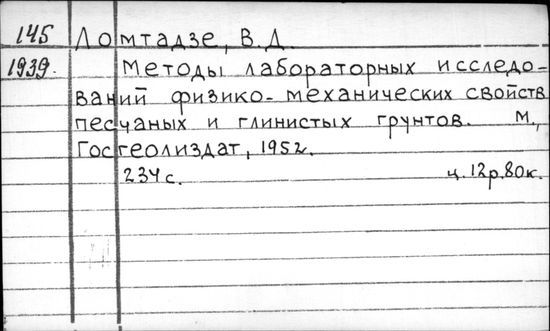 145 Ломтадзе, В.Д.
1939. Методы лабораторных исследо-
ваний физико-механических свойств
песчаных и глинистых грунтов. М.,
Госгеолиздат, 1952.
234 с. ц. 12р. 80к.